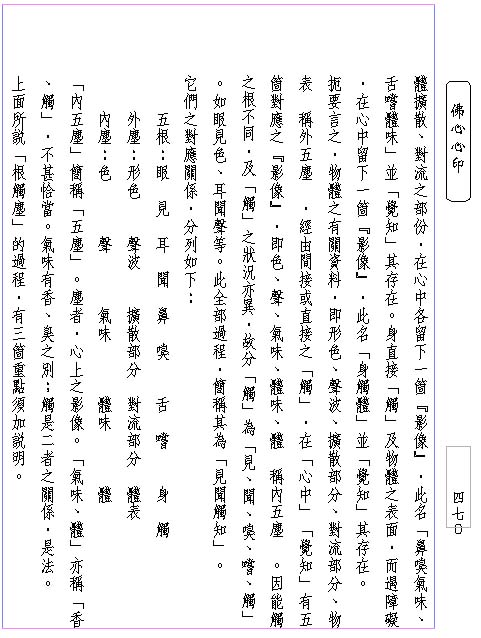 佛心心印
體擴散、對流之部份，在心中各留下一箇『影像』，此名「鼻嗅氣味、
舌嚐體味」並「覺知」其存在。身直接「觸」及物體之表面，而遇障礙
，在心中留下一箇『影像』，此名「身觸體」並「覺知」其存在。
扼要言之，物體之有關資料，即形色、聲波、擴散部分、對流部分、物
表　稱外五塵　，經由間接或直接之「觸」，在「心中」「覺知」有五
箇對應之『影像』，即色、聲、氣味、體味、體　稱內五塵　。因能觸
之根不同，及「觸」之狀況亦異，故分「觸」為「見、聞、嗅、嚐、觸」
。如眼見色、耳聞聲等。此全部過程，簡稱其為「見聞觸知」。
它們之對應關係，分列如下：
五根：眼　見　耳　聞　鼻　嗅　舌　嚐　身　觸
外塵：形色　聲波　擴散部分　對流部分　體表
內塵：色　聲　氣味　體味　體
「內五塵」簡稱「五塵」。塵者，心上之影像。「氣味、體」亦稱「香
、觸」，不甚恰當。氣味有香、臭之別；觸是二者之關係，是法。
上面所說「根觸塵」的過程，有三箇重點須加說明。
四七〇